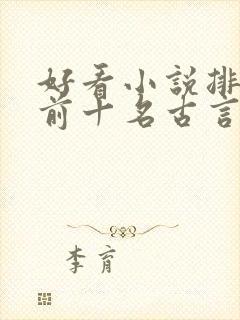 好看小說排
前十名古言
李育